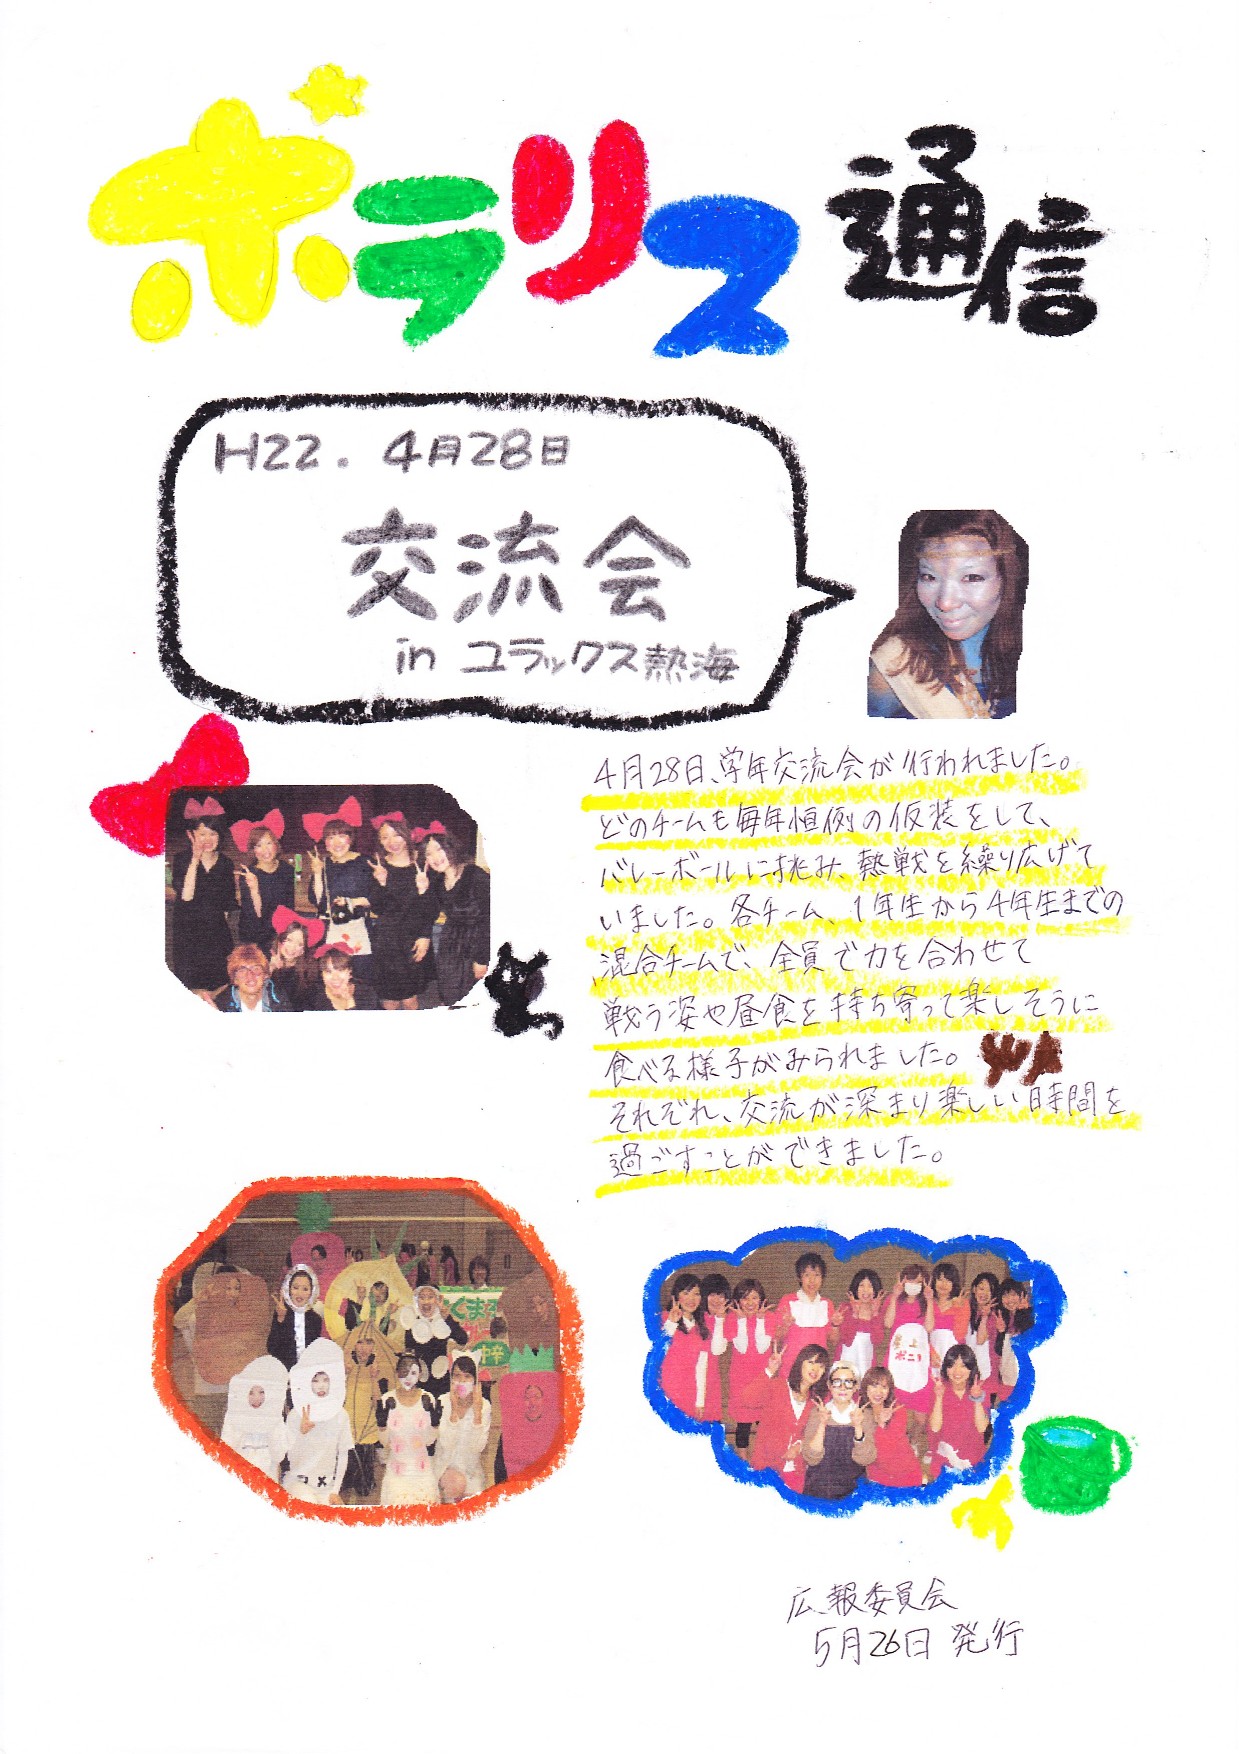 ポラリス通信
H22. 4月28日
交流会
in ユラックス熱海
4月28日、学年交流会が行われました。
どのチームも毎年恒例の仮装をして、
バレーボールに挑み、熱戦を繰り広げて
いました。各チーム、1年生から4年生までの
混合チームで、全員で力を合わせて
戦う姿や昼食を持ち寄って楽しそうに
食べる様子がみられました。
それぞれ、交流が深まり楽しい時間を
過ごすことができました。
広報委員会
5月26日 発行